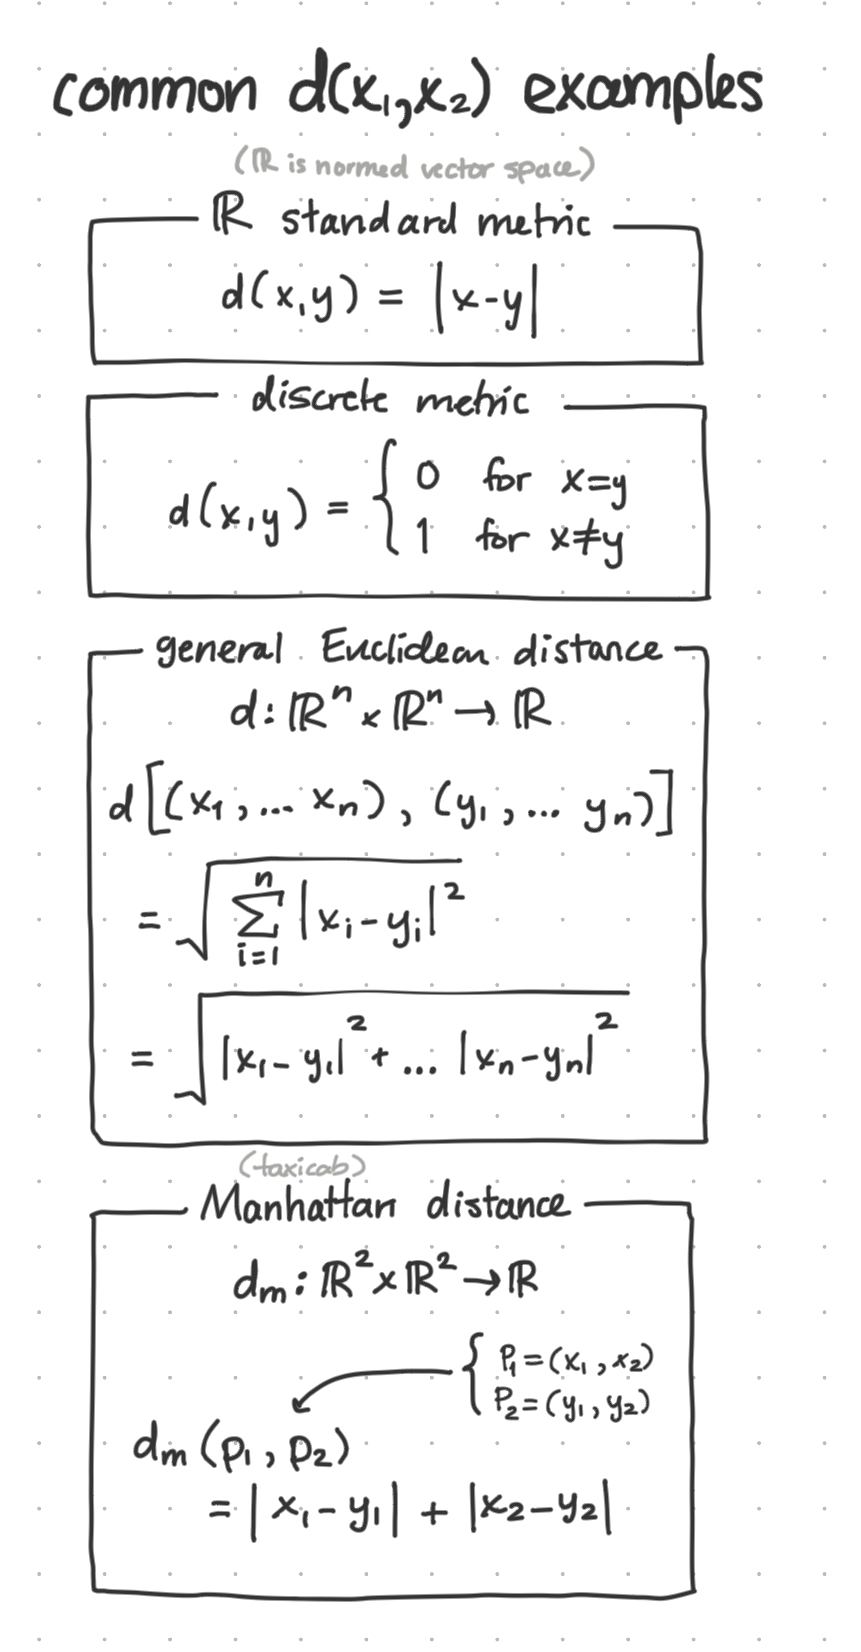 common d(x₁,x₂) examples
(ℝ is normed vector space)
ℝ standard metric
d(x,y) = |x-y|
discrete metric
d(x,y) = { 0 for x=y
1 for x≠y
general Euclidean distance
d: ℝⁿ × ℝⁿ → ℝ
d[(x₁,... xₙ), (y₁,... yₙ)]
= √(∑ᵢ₌₁ⁿ |xᵢ-yᵢ|²)
= √(|x₁-y₁|² + ... |xₙ-yₙ|²)
(taxicab)
Manhattan distance
dₘ: ℝ² × ℝ² → ℝ
{ P₁=(x₁,x₂)
P₂=(y₁,y₂)
dₘ(p₁,p₂)
= |x₁-y₁| + |x₂-y₂|